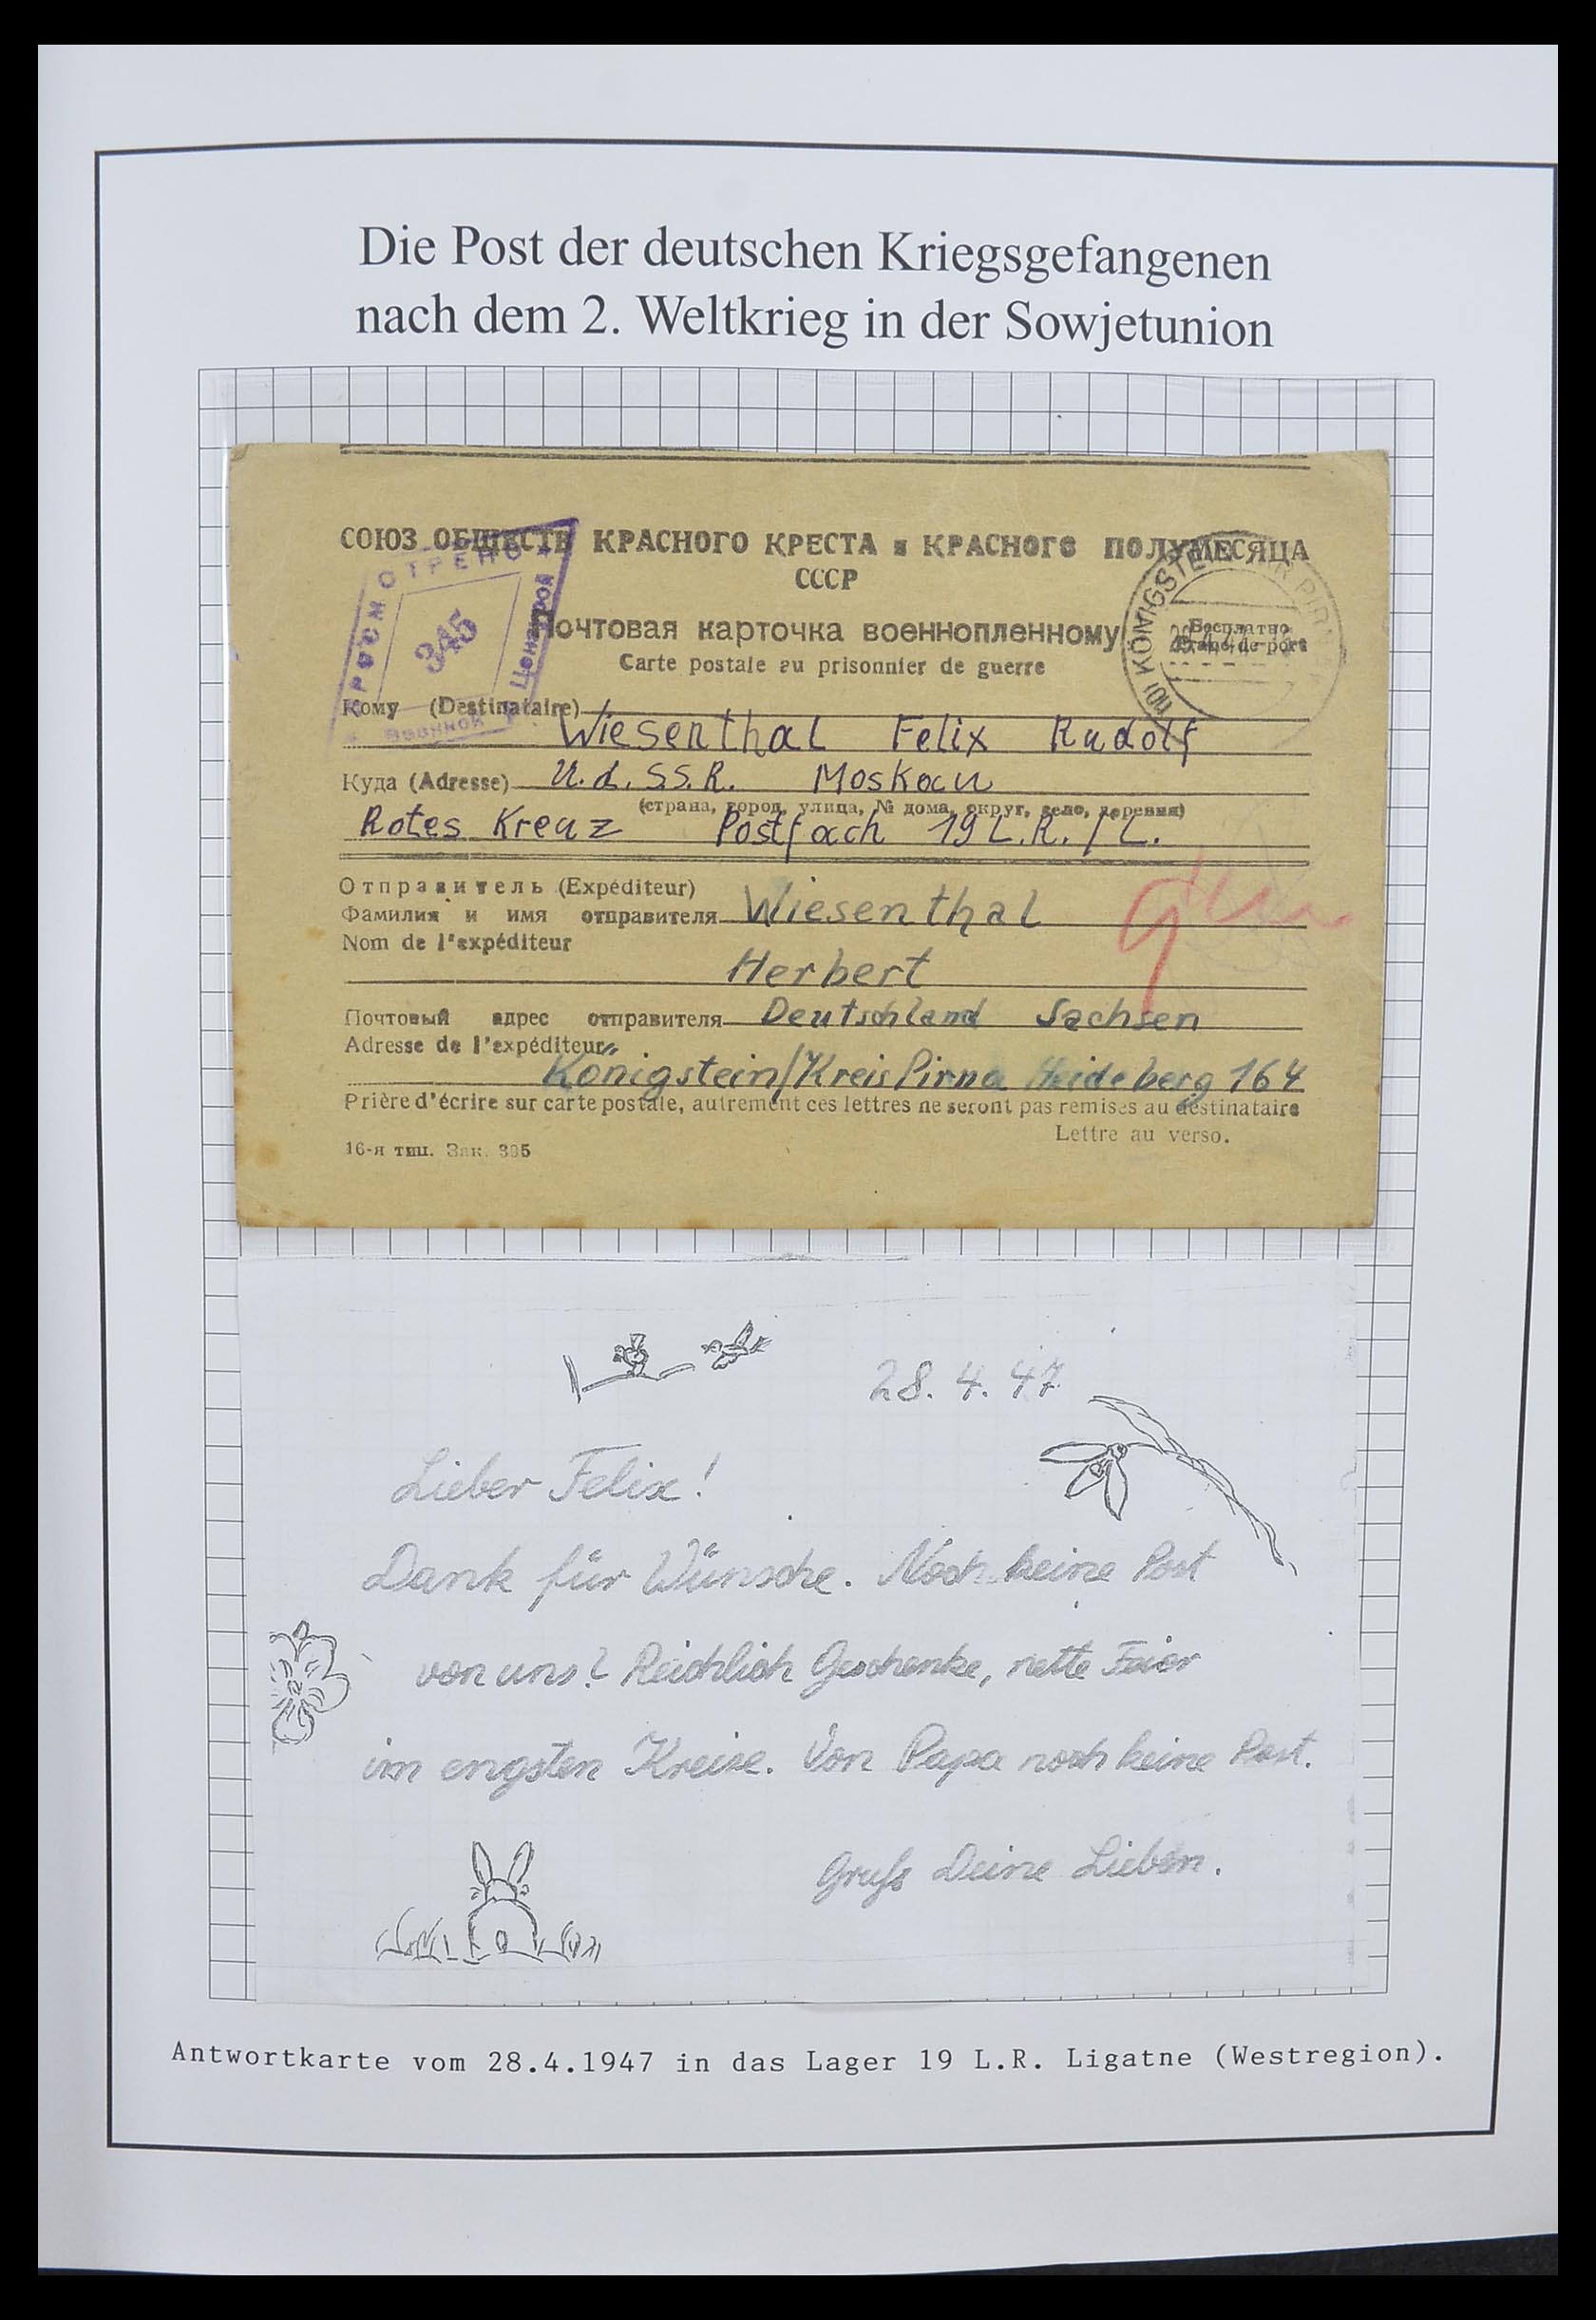 Die Post der deutschen Kriegsgefangenen
nach dem 2. Weltkrieg in der Sowjetunion
СОЮЗ ОБЩЕСТВ КРАСНОГО КРЕСТА и КРАСНОГО ПОЛУМЕСЯЦА
СССР
ПРОСМОТРЕНО
345
Военной Цензурой
Почтовая карточка военнопленному
Carte postale au prisonnier de guerre
Бесплатно
Franc de port
KÖNIGSTEIN
Кому (Destinataire) Wiesenthal Felix Rudolf
Куда (Adresse) U.d.S.S.R. Moskau
(страна, город, улица, № дома, округ, село, деревня)
Rotes Kreuz Postfach 19 L.R. / L.
Отправитель (Expéditeur)
Фамилия и имя отправителя Wiesenthal
Nom de l'expéditeur
Herbert
Почтовый адрес отправителя Deutschland Sachsen
Adresse de l'expéditeur
Königstein/Kreis Pirna Heideberg 164
Prière d'écrire sur carte postale, autrement ces lettres ne seront pas remises au destinataire
Lettre au verso.
16-я тип. Зак. 395
28. 4. 47
Lieber Felix!
Dank für Wünsche. Noch keine Post
von uns? Reichlich Geschenke, nette Feier
im engsten Kreise. Von Papa noch keine Post.
Gruß Deine Lieben.
Antwortkarte vom 28.4.1947 in das Lager 19 L.R. Ligatne (Westregion).